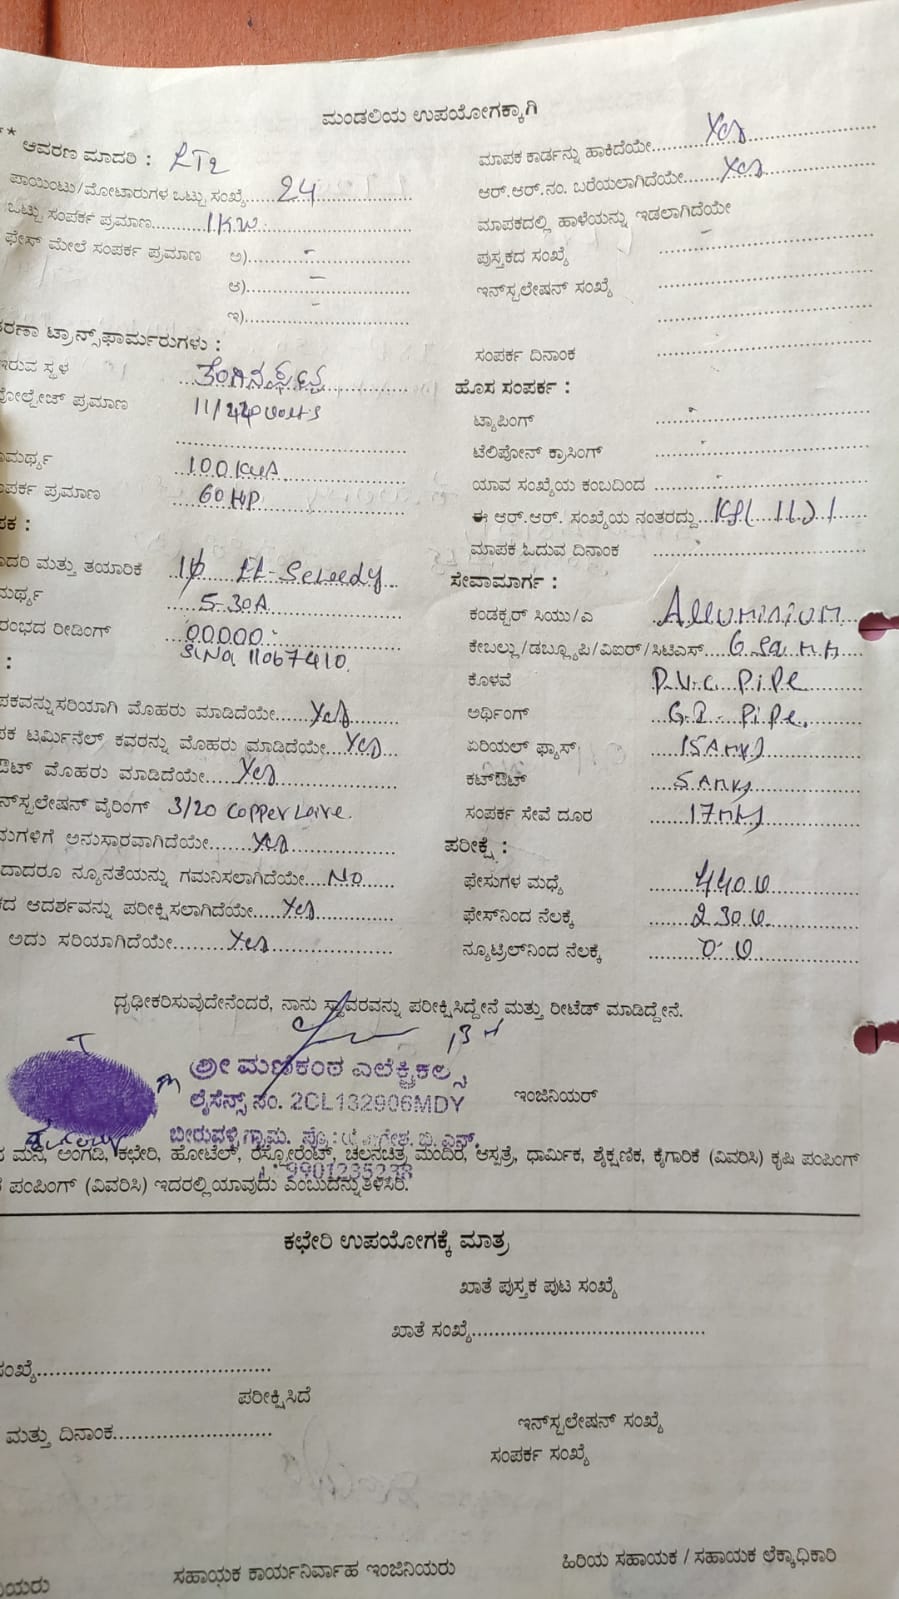 ಮಂಡಲಿಯ ಉಪಯೋಗಕ್ಕಾಗಿ
** ಆವರಣ ಮಾದರಿ : LT2
ಪಾಯಿಂಟು/ಮೋಟಾರುಗಳ ಒಟ್ಟು ಸಂಖ್ಯೆ..... 24
ಒಟ್ಟು ಸಂಪರ್ಕ ಪ್ರಮಾಣ......... 1KW
ಫೇಸ್ ಮೇಲೆ ಸಂಪರ್ಕ ಪ್ರಮಾಣ ಅ)........ -
ಆ)........ -
ಇ)........ -
ರಣಾ ಟ್ರಾನ್ಸ್‌ಫಾರ್ಮರುಗಳು :
ಇರುವ ಸ್ಥಳ
ವೋಲ್ಟೇಜ್ ಪ್ರಮಾಣ 11/440 volts
ಮರ್ಥ್ಯ 100 KVA
ಪರ್ಕ ಪ್ರಮಾಣ 60 HP
ಪಕ :
ದರಿ ಮತ್ತು ತಯಾರಿಕೆ 1φ
ಮರ್ಥ್ಯ 5-30A
ರಂಭದ ರೀಡಿಂಗ್ 00000
Sl No 11067410
:
ಪಕವನ್ನು ಸರಿಯಾಗಿ ಮೊಹರು ಮಾಡಿದೆಯೇ..... Yes
ಪಕ ಟರ್ಮಿನೆಲ್ ಕವರನ್ನು ಮೊಹರು ಮಾಡಿದೆಯೇ... Yes
ಔಟ್ ಮೊಹರು ಮಾಡಿದೆಯೇ..... Yes
ನ್‌ಸ್ಟಲೇಷನ್ ವೈರಿಂಗ್ 3/20 Copper
ಮಗಳಿಗೆ ಅನುಸಾರವಾಗಿದೆಯೇ...... Yes
ದಾದರೂ ನ್ಯೂನತೆಯನ್ನು ಗಮನಿಸಲಾಗಿದೆಯೇ... No
ದ ಆದರ್ಶವನ್ನು ಪರೀಕ್ಷಿಸಲಾಗಿದೆಯೇ.... Yes
ಅದು ಸರಿಯಾಗಿದೆಯೇ........ Yes
ಮಾಪಕ ಕಾರ್ಡನ್ನು ಹಾಕಿದೆಯೇ........ Yes
ಆರ್.ಆರ್.ನಂ. ಬರೆಯಲಾಗಿದೆಯೇ...... Yes
ಮಾಪಕದಲ್ಲಿ ಹಾಳೆಯನ್ನು ಇಡಲಾಗಿದೆಯೇ
ಪುಸ್ತಕದ ಸಂಖ್ಯೆ -
ಇನ್‌ಸ್ಟಲೇಷನ್ ಸಂಖ್ಯೆ
ಸಂಪರ್ಕ ದಿನಾಂಕ
ಹೊಸ ಸಂಪರ್ಕ :
ಟ್ಯಾಪಿಂಗ್
ಟೆಲಿಪೋನ್ ಕ್ರಾಸಿಂಗ್
ಯಾವ ಸಂಖ್ಯೆಯ ಕಂಬದಿಂದ
ಈ ಆರ್.ಆರ್. ಸಂಖ್ಯೆಯ ನಂತರದ್ದು
ಮಾಪಕ ಓದುವ ದಿನಾಂಕ
ಸೇವಾಮಾರ್ಗ :
ಕಂಡಕ್ಟರ್ ಸಿಯು/ಎ Alluminium
ಕೇಬಲ್ಲು/ಡಬ್ಲ್ಯೂಪಿ/ವಿಐಆರ್/ಸಿಟಿಎಸ್ 6 Sq. m.m
ಕೊಳವೆ P.V.C Pipe
ಅರ್ಥಿಂಗ್ G.I. Pipe.
ಏರಿಯಲ್ ಫ್ಯೂಸ್ 15 Amps
ಕಟ್‌ಔಟ್ 5 Amps
ಸಂಪರ್ಕ ಸೇವೆ ದೂರ 17 mts
ಪರೀಕ್ಷೆ :
ಫೇಸುಗಳ ಮಧ್ಯೆ 440 V
ಫೇಸ್‌ನಿಂದ ನೆಲಕ್ಕೆ 230 V
ನ್ಯೂಟ್ರಲ್‌ನಿಂದ ನೆಲಕ್ಕೆ 0 V
ದೃಢೀಕರಿಸುವುದೇನೆಂದರೆ, ನಾನು ಸ್ಥಾವರವನ್ನು ಪರೀಕ್ಷಿಸಿದ್ದೇನೆ ಮತ್ತು ರೀಟೆಡ್ ಮಾಡಿದ್ದೇನೆ.
ಶ್ರೀ ಮಣಿಕಂಠ ಎಲೆಕ್ಟ್ರಿಕಲ್ಸ್
ಲೈಸೆನ್ಸ್ ನಂ. 2CL132906MDY
ಇಂಜಿನಿಯರ್
ಬೀರುವಳ್ಳಿ ಗ್ರಾಮ.
9901235238
ಮನೆ, ಅಂಗಡಿ, ಕಛೇರಿ, ಹೋಟೆಲ್, ರೆಸ್ಟೋರೆಂಟ್, ಚಲನಚಿತ್ರ ಮಂದಿರ, ಆಸ್ಪತ್ರೆ, ಧಾರ್ಮಿಕ, ಶೈಕ್ಷಣಿಕ, ಕೈಗಾರಿಕೆ (ವಿವರಿಸಿ) ಕೃಷಿ ಪಂಪಿಂಗ್
ಪಂಪಿಂಗ್ (ವಿವರಿಸಿ) ಇದರಲ್ಲಿ ಯಾವುದು ಎಂಬುದನ್ನು ತಿಳಿಸಿರಿ.
ಕಛೇರಿ ಉಪಯೋಗಕ್ಕೆ ಮಾತ್ರ
ಖಾತೆ ಪುಸ್ತಕ ಪುಟ ಸಂಖ್ಯೆ
ಖಾತೆ ಸಂಖ್ಯೆ........................................
ಸಂಖ್ಯೆ........................................
ಪರೀಕ್ಷಿಸಿದೆ
ಮತ್ತು ದಿನಾಂಕ...........................
ಇನ್‌ಸ್ಟಲೇಷನ್ ಸಂಖ್ಯೆ
ಸಂಪರ್ಕ ಸಂಖ್ಯೆ
ನಿಯರು
ಸಹಾಯಕ ಕಾರ್ಯನಿರ್ವಾಹ ಇಂಜಿನಿಯರು
ಹಿರಿಯ ಸಹಾಯಕ / ಸಹಾಯಕ ಲೆಕ್ಕಾಧಿಕಾರಿ